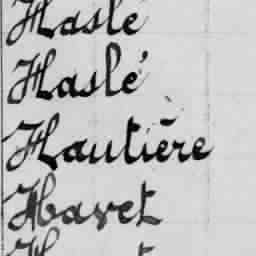 Haslé
Haslé
Hautière
Havet